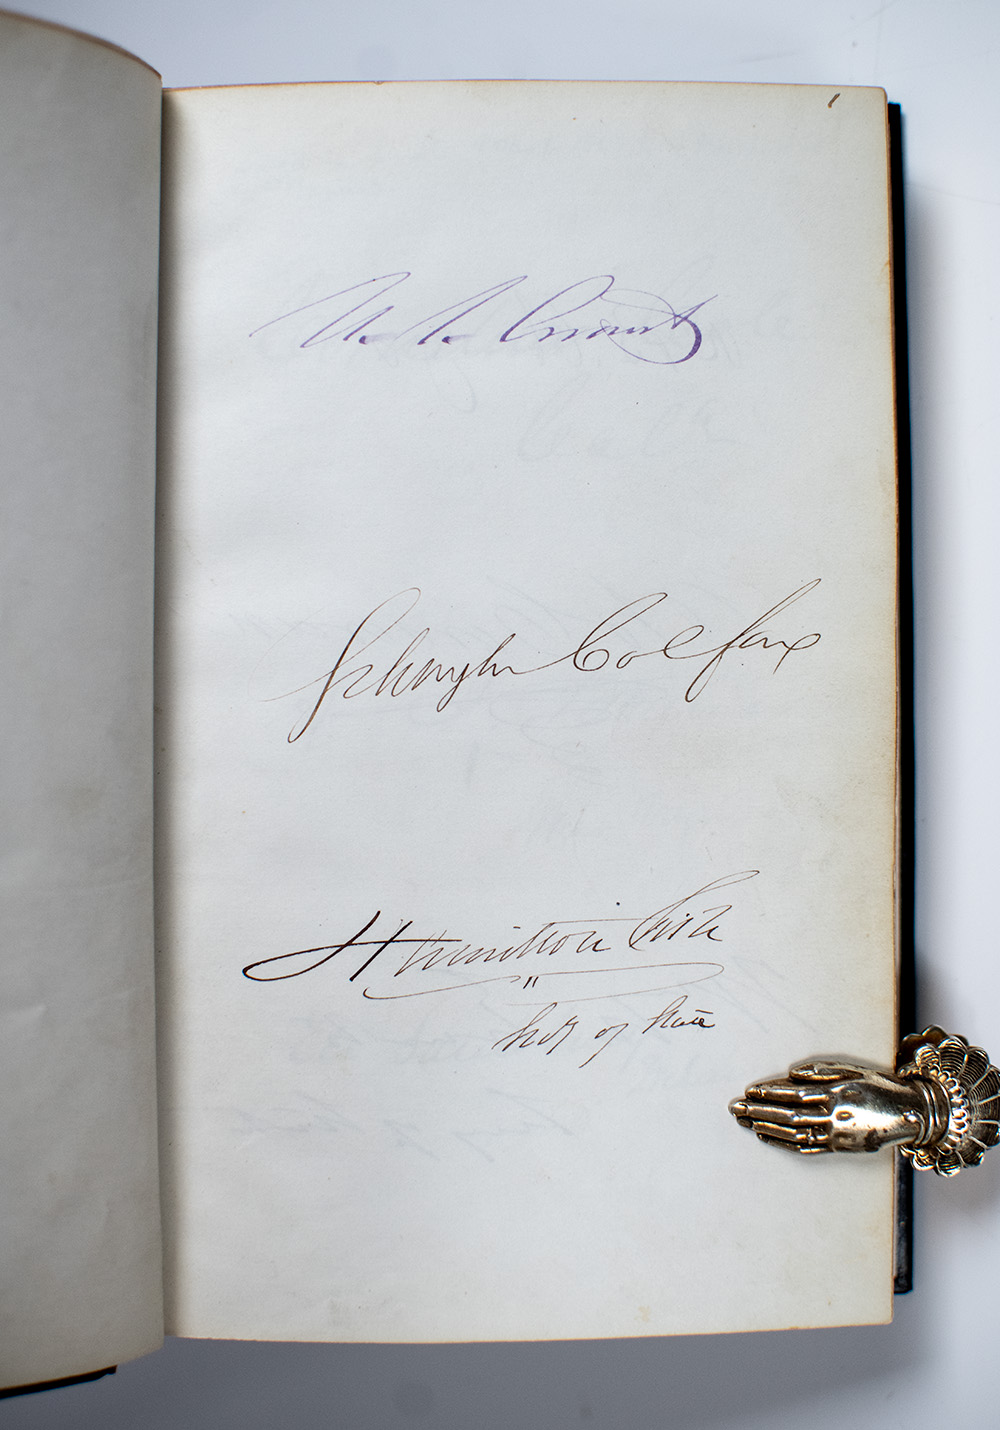 1
U. S. Grant
Schuyler Colfax
Hamilton Fish
Secy of State